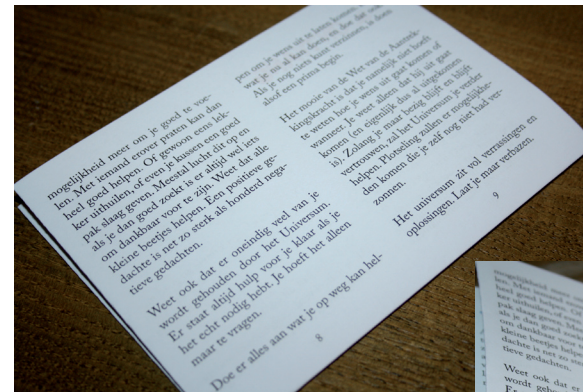 mogelijkheid meer om je goed te voe-
len. Met iemand erover praten kan dan
heel goed helpen. Of gewoon eens lek-
ker uithuilen, of even je kussen een goed
pak slaag geven. Meestal lucht dit op en
als je dan goed zoekt is er altijd wel iets
om dankbaar voor te zijn. Weet dat alle
kleine beetjes helpen. Een positieve ge-
dachte is net zo sterk als honderd nega-
tieve gedachten.
Weet ook dat er oneindig veel van je
wordt gehouden door het Universum.
Er staat altijd hulp voor je klaar als je
het echt nodig hebt. Je hoeft het alleen
maar te vragen.
Doe er alles aan wat je op weg kan hel-
8
pen om je wens uit te laten komen
wat je nu al kan doen, en doe dat ook
Als je nog niets kunt verzinnen, is doen
alsof een prima begin.
Het mooie van de Wet van de Aantrek-
kingskracht is dat je namelijk niet hoeft
te weten hoe je wens uit gaat komen of
wanneer. Je weet alleen dat hij uit gaat
komen (en eigenlijk dus al uitgekomen
is). Zolang je maar bezig blijft en blijft
vertrouwen, zal het Universum je verder
helpen. Plotseling zullen er mogelijkhe-
den komen die je zelf nog niet had ver-
zonnen.
Het universum zit vol verrassingen en
oplossingen. Laat je maar verbazen.
9
mogelijkheid meer
len. Met iemand
heel goed helpen.
ker uithuilen, of
pak slaag geven.
als je dan goed
om dankbaar voor
kleine beetjes
dachte is net zo
tieve gedachten.
Weet ook dat er
wordt